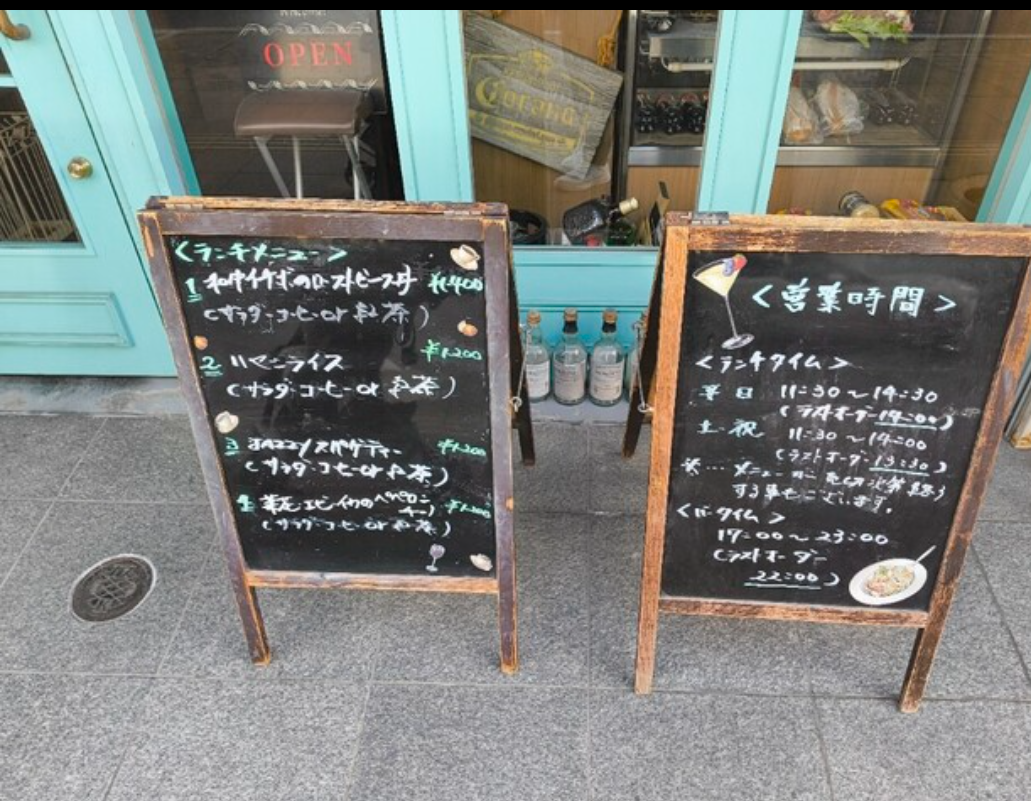 OPEN
Corona
<ランチメニュー>
1 和牛イチボのローストビーフ丼 ¥1,400
(サラダ・コーヒーor 紅茶)
2 ハヤシライス ¥1,200
(サラダ・コーヒーor 紅茶)
3 スパゲティー ¥1,200
(サラダ・コーヒーor 紅茶)
4 エビ、イカのペペロンチーノ ¥1,200
(サラダ・コーヒーor 紅茶)
<営業時間>
<ランチタイム>
平日 11:30〜14:30
(ラストオーダー14:00)
土・祝 11:30〜14:00
(ラストオーダー13:30)
※…メニュー 売切次第終了
する事もございます。
<バータイム>
17:00〜23:00
(ラストオーダー
22:00)